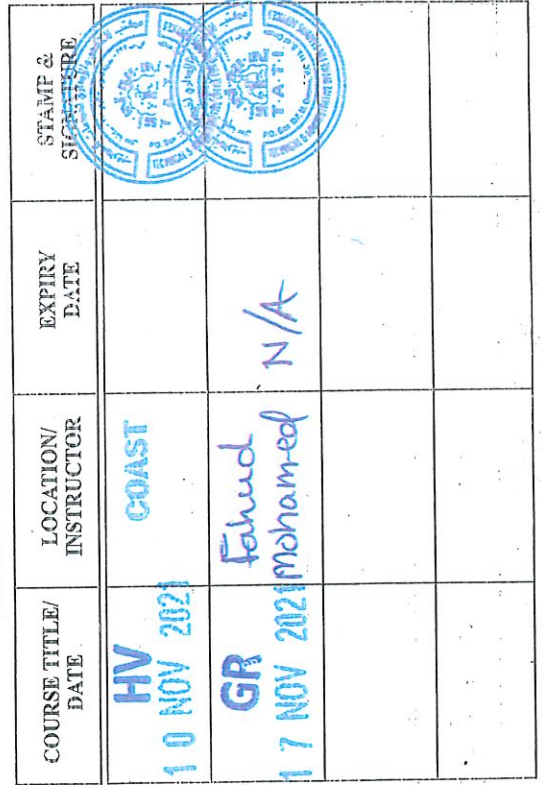 COURSE TITLE/
DATE
LOCATION/
INSTRUCTOR
EXPIRY
DATE
STAMP &
SIGNATURE
HV
10 NOV 2021
COAST
GR
17 NOV 2021
Fahud
Mohamed
N/A
T A T I